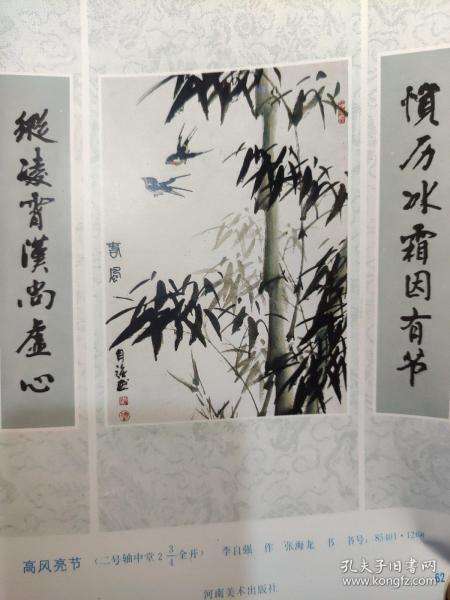 惯历冰霜因有节
春风
自强
纵凌霄汉尚虚心
高风亮节 (二号轴中堂2 3/4全开) 李自强 作 张海龙 书 书号:85401·1260
河南美术出版社
62
孔夫子旧书网